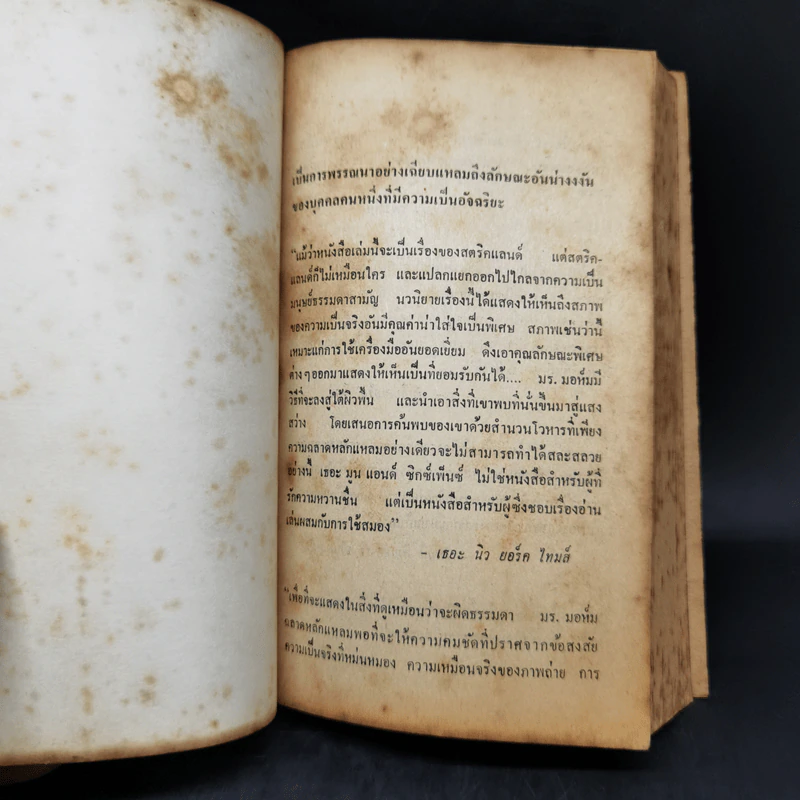 เป็นการพรรณนาอย่างเฉียบแหลมถึงลักษณะอันน่างงงัน
ของบุคคลคนหนึ่งที่มีความเป็นอัจฉริยะ
"แม้ว่าหนังสือเล่มนี้จะเป็นเรื่องของสตริคแลนด์ แต่สตริค-
แลนด์ก็ไม่เหมือนใคร และแปลกแยกออกไปไกลจากความเป็น
มนุษย์ธรรมดาสามัญ นวนิยายเรื่องนี้ได้แสดงให้เห็นถึงสภาพ
ของความเป็นจริงอันมีคุณค่าน่าใส่ใจเป็นพิเศษ สภาพเช่นว่านี้
เหมาะแก่การใช้เครื่องมืออันยอดเยี่ยม ดึงเอาคุณลักษณะพิเศษ
ต่างๆออกมาแสดงให้เห็นเป็นที่ยอมรับกันได้.... มร. มอห์มมี
วิธีที่จะลงสู่ใต้ผิวพื้น และนำเอาสิ่งที่เขาพบที่นั่นขึ้นมาสู่แสง
สว่าง โดยเสนอการค้นพบของเขาด้วยสำนวนโวหารที่เพียง
ความฉลาดหลักแหลมอย่างเดียวจะไม่สามารถทำได้สละสลวย
อย่างนี้ เธอะ มูน แอนด์ ซิกซ์เพ็นซ์ ไม่ใช่หนังสือสำหรับผู้ที่
รักความหวานชื่น แต่เป็นหนังสือสำหรับผู้ซึ่งชอบเรื่องอ่าน
เล่นผสมกับการใช้สมอง"
– เธอะ นิว ยอร์ค ไทมส์
"เพื่อที่จะแสดงในสิ่งที่ดูเหมือนว่าจะผิดธรรมดา มร. มอห์ม
ฉลาดหลักแหลมพอที่จะให้ความคมชัดที่ปราศจากข้อสงสัย
ความเป็นจริงที่หม่นหมอง ความเหมือนจริงของภาพถ่าย การ